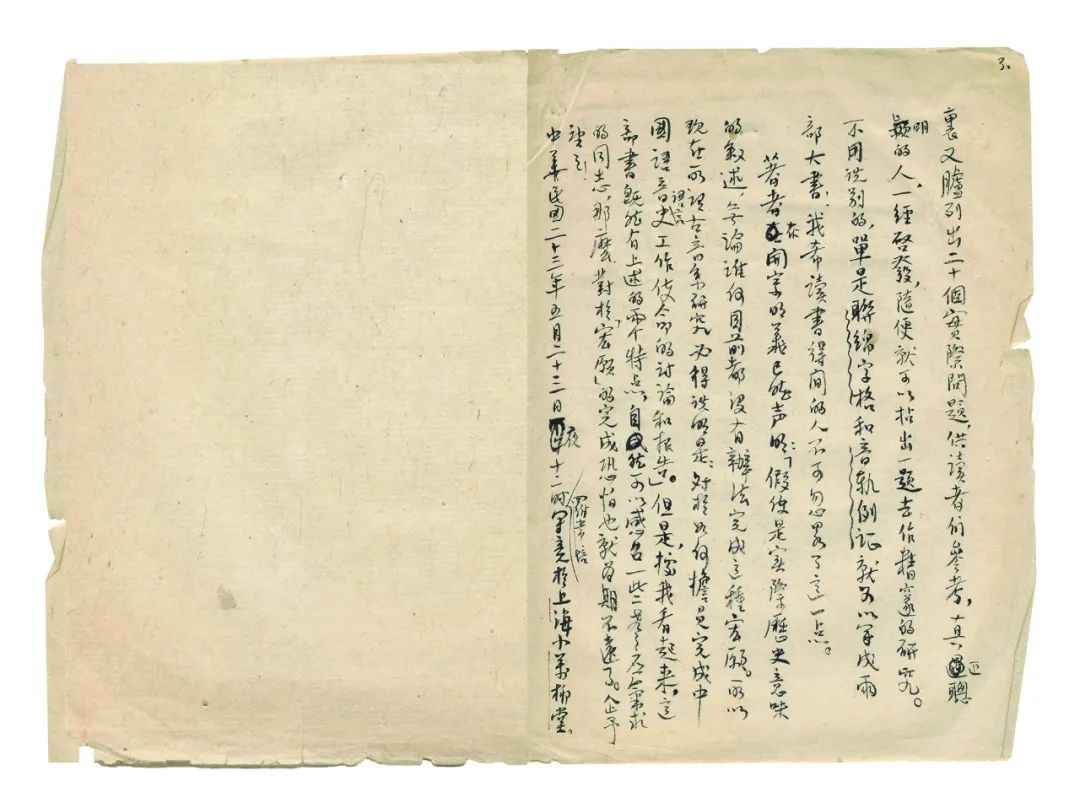 3.
裏又臚列出二十個實際問題,供讀者们參考,真正聰
明的人,一經啓發,隨便就可以拈出一題去作精邃的研究。
不用説别的,單是聯綿字格和音軌例证就可以写成兩
部大書,我希讀書得间的人不可忽畧了這一点。
著者在開宗明義已然声明:「假使是实際歷史意味
的叙述,無論誰何目前都没有辦法完成這種宏願。所以
现在所谓古音系研究,必得説明是:对於如何擔負完成中
國語音語言史工作使命的討論和报告。」但是,據我看起来,這
部書既然有上述的两个特点,自然可以感召一些声应氣求
的同志,那麽對於「宏願」的完成恐怕也就为期不遠了。企予
望之!
羅常培
中華民國二十三年五月二十二日夜十二時写竟於上海小萬柳堂。